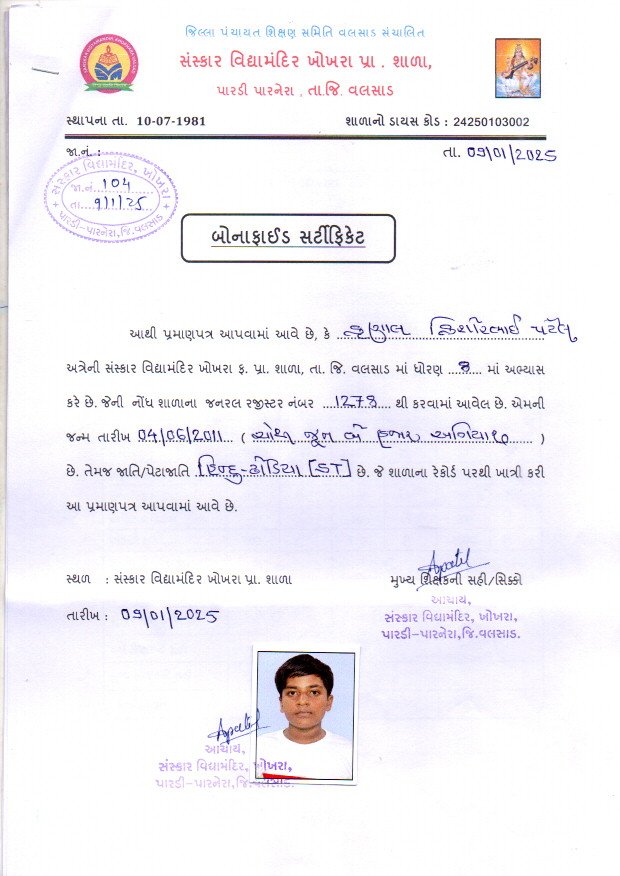 જિલ્લા પંચાયત શિક્ષણ સમિતિ વલસાડ સંચાલિત
સંસ્કાર વિદ્યામંદિર ખોખરા પ્રા . શાળા,
પારડી પારનેરા , તા.જિ. વલસાડ
સ્થાપના તા. 10-07-1981 શાળાનો ડાયસ કોડ : 24250103002
જા.નં. : તા. 09/01/2025
સંસ્કાર વિદ્યામંદિર, ખોખરા
જા.નં. 104
તા. 9/1/25
પારડી-પારનેરા,જિ.વલસાડ
બોનાફાઈડ સર્ટીફિકેટ
આથી પ્રમાણપત્ર આપવામાં આવે છે, કે કિશોરભાઈ પટેલ
અત્રેની સંસ્કાર વિદ્યામંદિર ખોખરા ફ. પ્રા. શાળા, તા. જિ. વલસાડ માં ધોરણ 8 માં અભ્યાસ
કરે છે. જેની નોંધ શાળાના જનરલ રજીસ્ટર નંબર 1278 થી કરવામાં આવેલ છે. એમની
જન્મ તારીખ 04/06/2011 ( ચોથી જૂન બે હજાર અગિયાર )
છે. તેમજ જાતિ/પેટાજાતિ હિન્દુ-ઢોડિયા [ST] છે. જે શાળાના રેકોર્ડ પરથી ખાત્રી કરી
આ પ્રમાણપત્ર આપવામાં આવે છે.
Apatel
સ્થળ : સંસ્કાર વિદ્યામંદિર ખોખરા પ્રા. શાળા મુખ્ય શિક્ષકની સહી/સિક્કો
આચાર્ય,
તારીખ : 09/01/2025 સંસ્કાર વિદ્યામંદિર, ખોખરા,
પારડી-પારનેરા,જિ.વલસાડ.
Apatel
આચાર્ય,
સંસ્કાર વિદ્યામંદિર, ખોખરા,
પારડી-પારનેરા,જિ.વલસાડ.